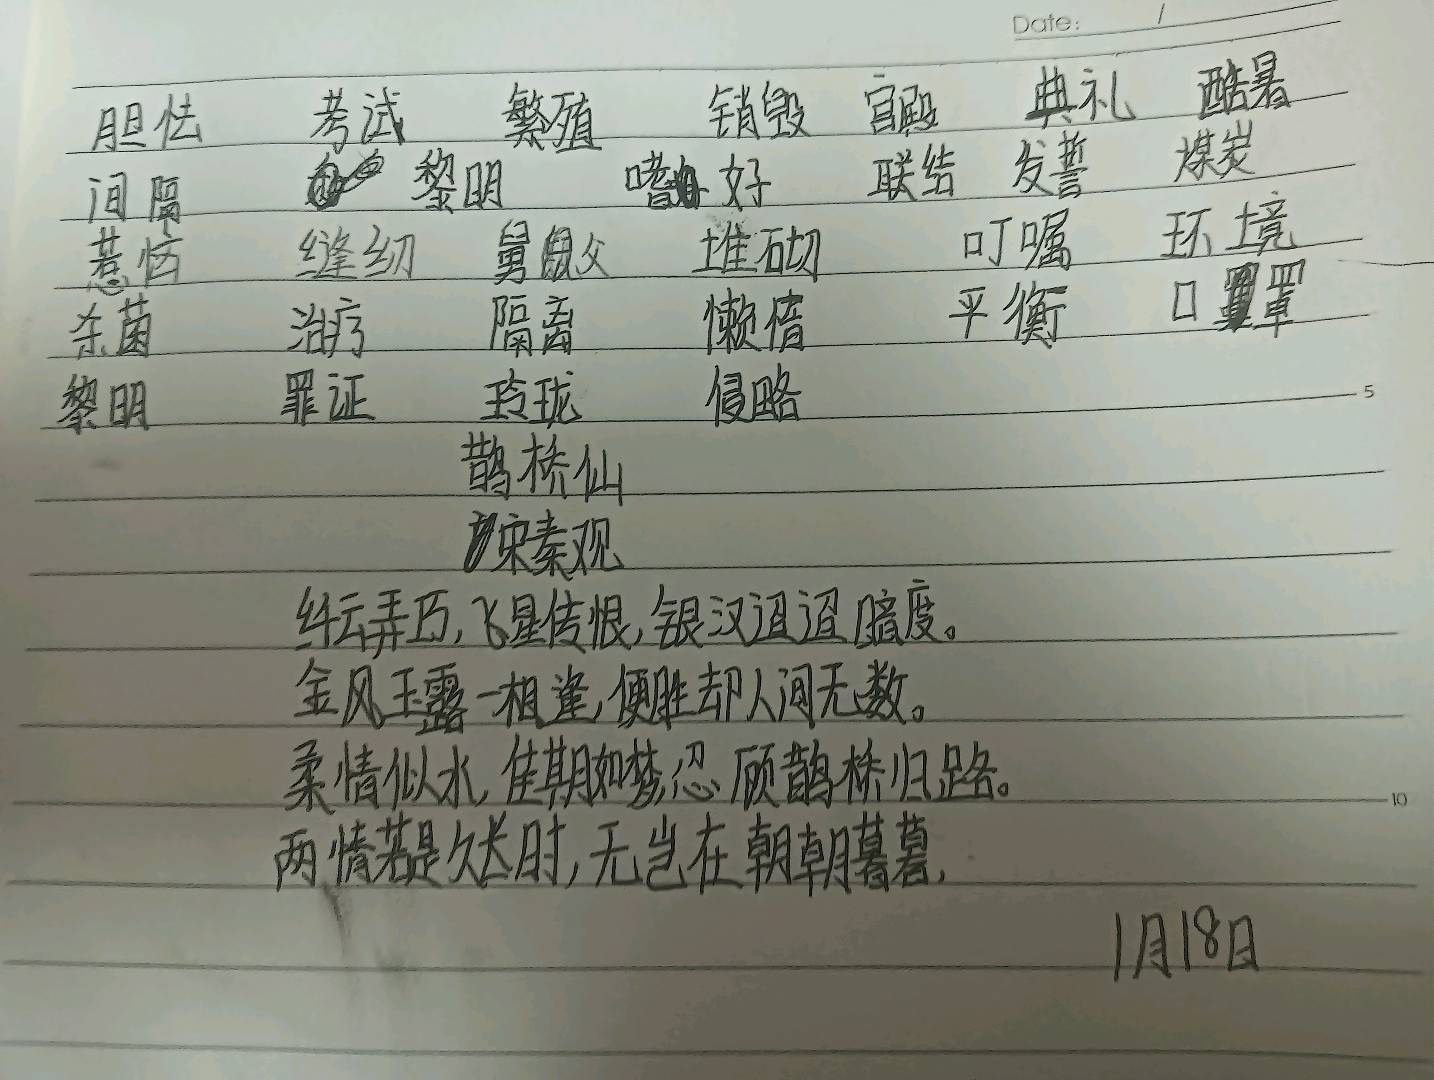 Date: /
胆怯 考试 繁殖 销毁 宫殿 典礼 酷暑
间隔 黎明 嗜好 联结 发誓 煤炭
惹恼 缝纫 舅父 堆砌 叮嘱 环境
杀菌 治疗 隔离 懒惰 平衡 口罩
黎明 罪证 玲珑 侵略
5
鹊桥仙
宋秦观
纤云弄巧,飞星传恨,银汉迢迢暗度。
金风玉露一相逢,便胜却人间无数。
柔情似水,佳期如梦,忍顾鹊桥归路。
10
两情若是久长时,无岂在朝朝暮暮,
1月18日